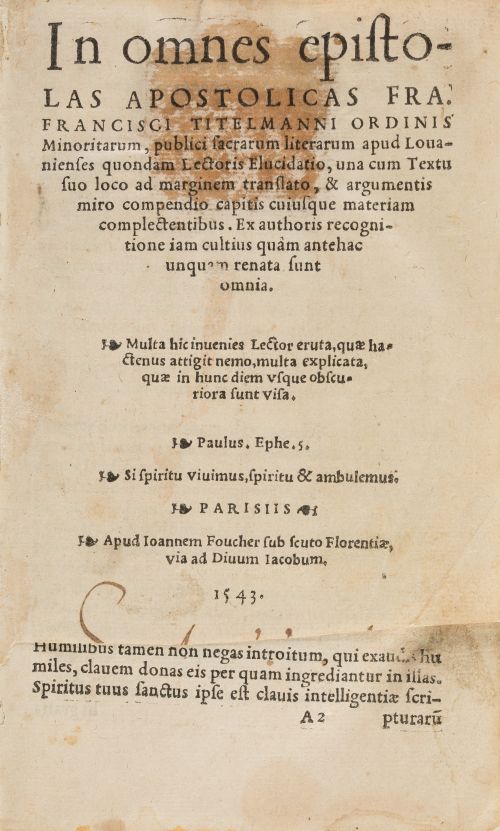 In omnes episto-
LAS APOSTOLICAS FRA.
FRANCISCI TITELMANNI ORDINIS
Minoritarum, publici sacrarum literarum apud Loua-
nienses quondam Lectoris Elucidatio, una cum Textu
suo loco ad marginem translato, & argumentis
miro compendio capitis cuiusque materiam
complectentibus. Ex authoris recogni-
tione iam cultius quàm antehac
unquam renata sunt
omnia.
Multa hic inuenies Lector eruta, quæ ha-
ctenus attigit nemo, multa explicata,
quæ in hunc diem vsque obscu-
riora sunt visa.
Paulus. Ephe. 5.
Si spiritu viuimus, spiritu & ambulemus.
PARISIIS
Apud Ioannem Foucher sub scuto Florentiæ,
via ad Diuum Iacobum.
1543.
Humilibus tamen non negas introitum, qui exaudis hu
miles, clauem donas eis per quam ingrediantur in illas.
Spiritus tuus sanctus ipse est clauis intelligentiæ scri-
A2 pturarū